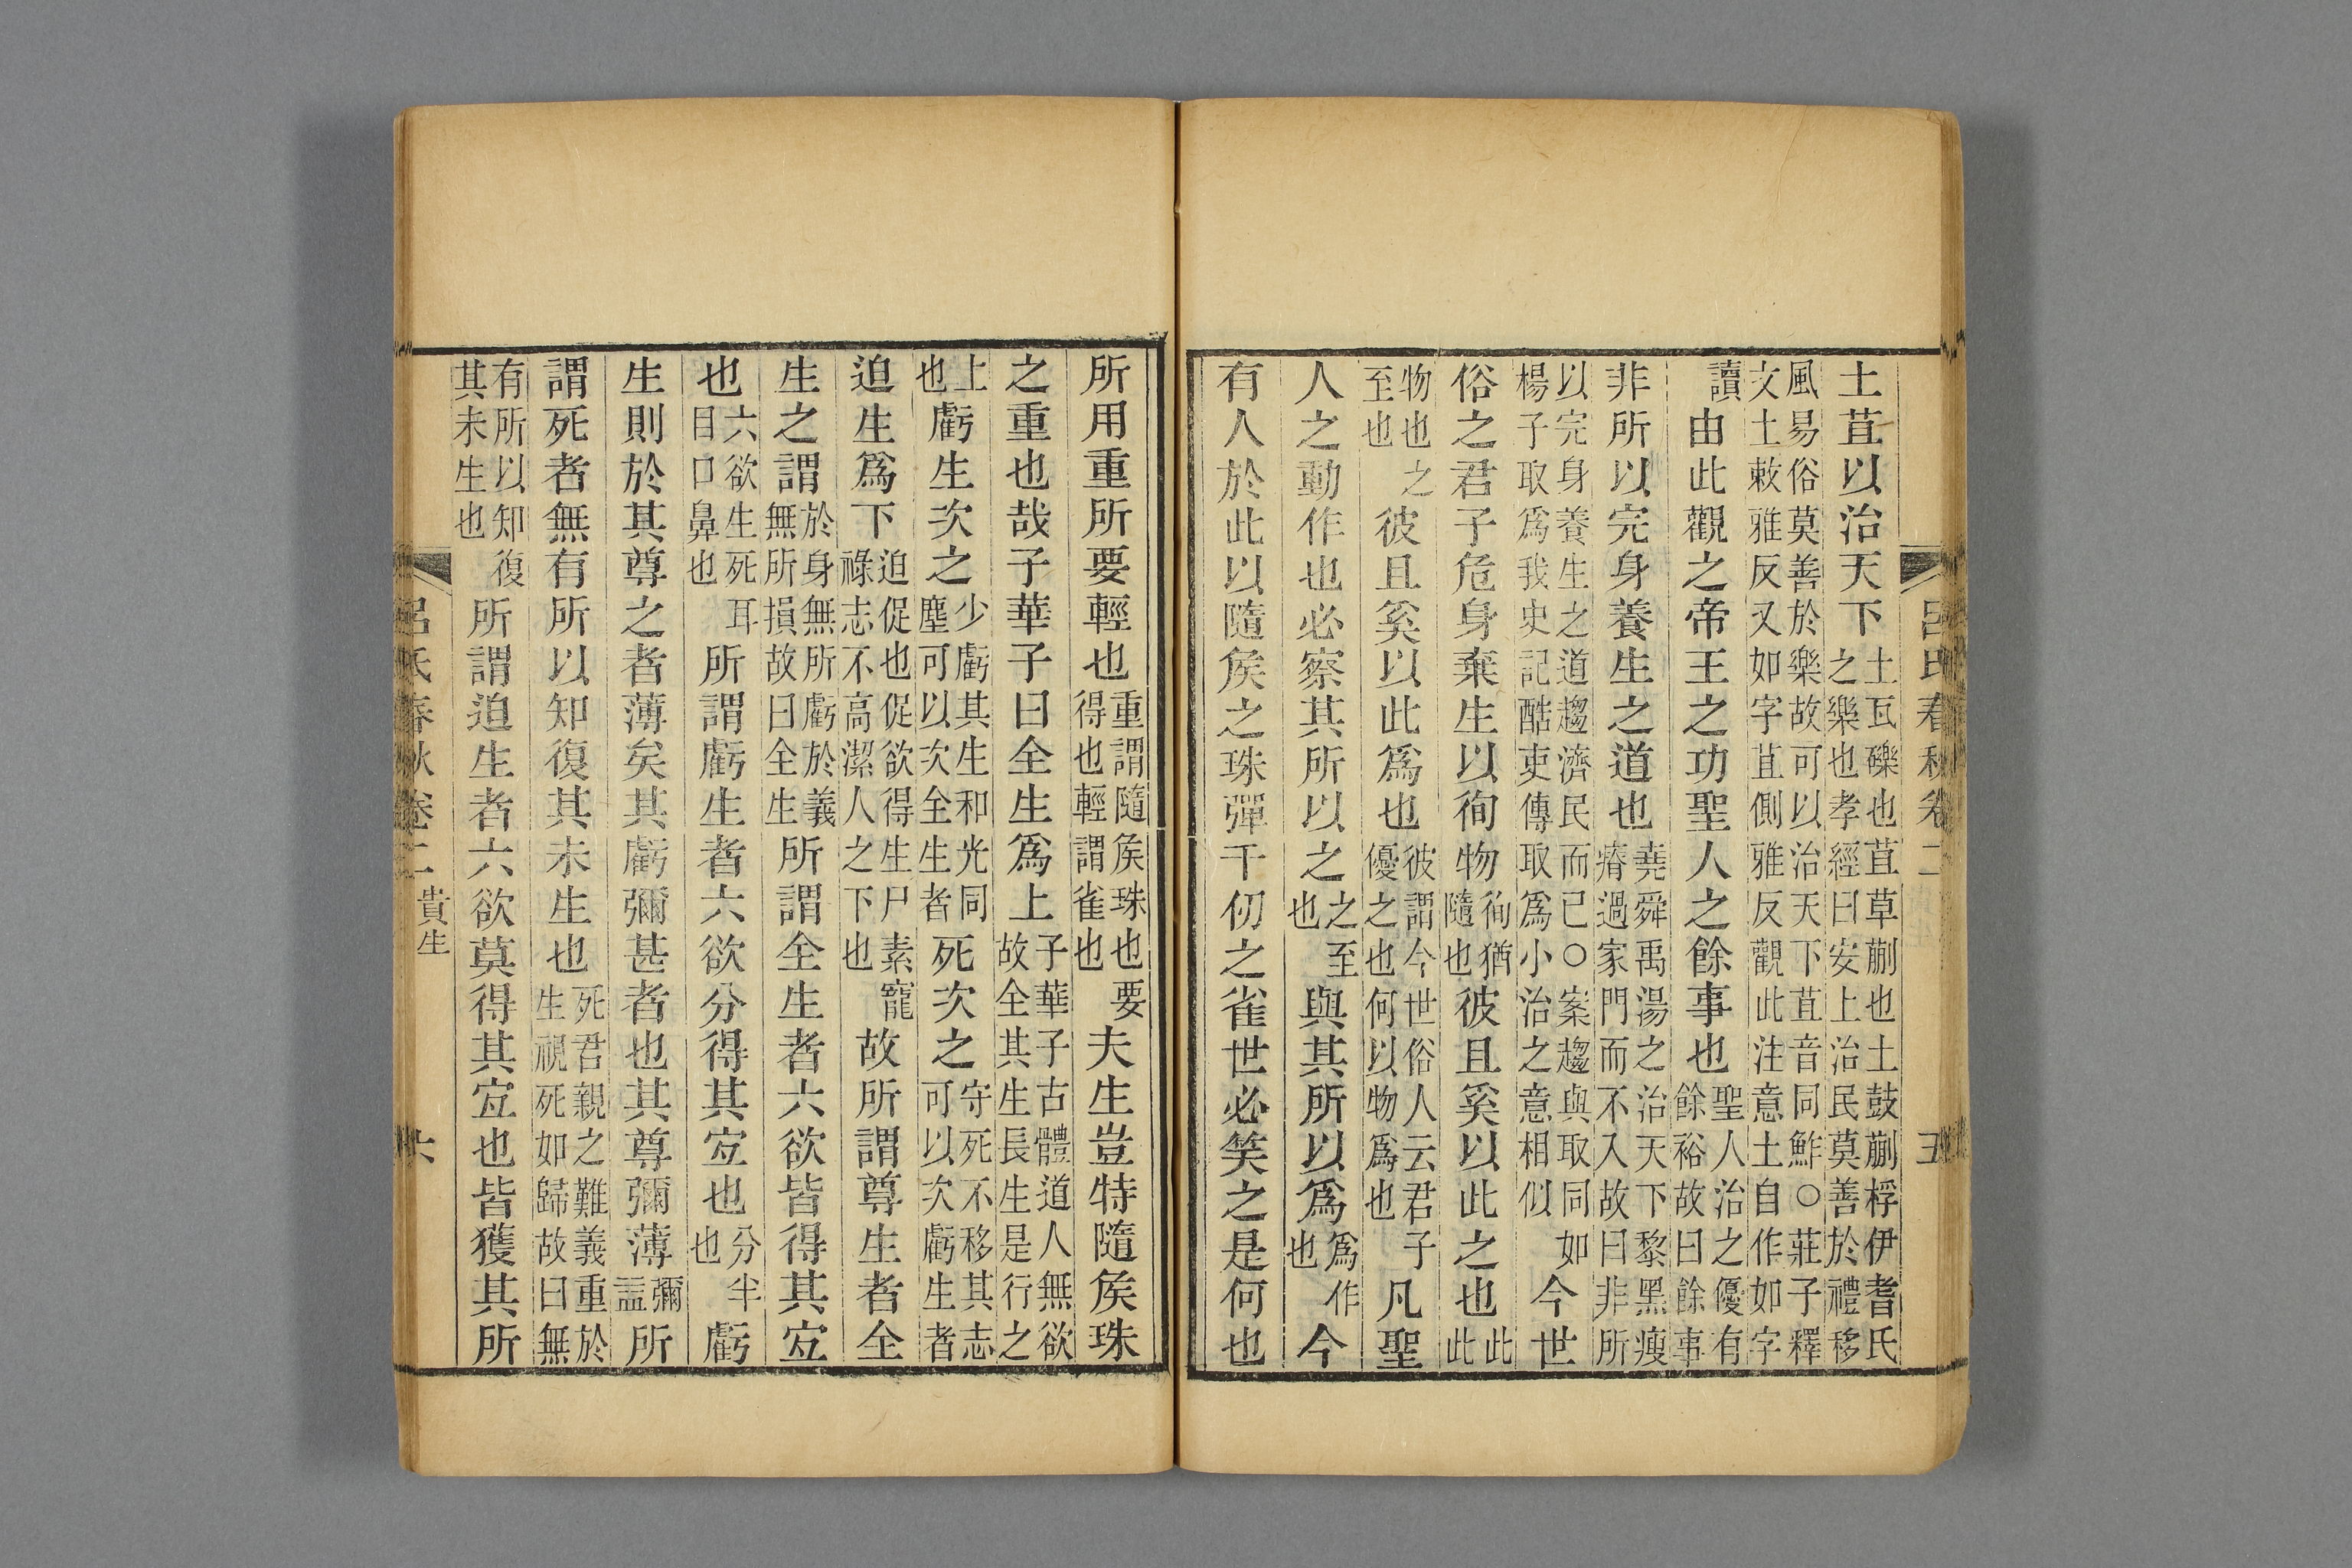 呂氏春秋卷二 五
土苴以治天下土瓦礫也苴草蒯也土鼓蒯桴伊耆氏之樂也孝經曰安上治民莫善於禮移
風易俗莫善於樂故可以治天下苴音同鮓○莊子釋文土敕雅反又如字苴側雅反觀此注意土自作如字
讀由此觀之帝王之功聖人之餘事也聖人治之優有餘裕故曰餘事
非所以完身養生之道也堯舜禹湯之治天下黎黑瘦瘠過家門而不入故曰非所
以完身養生之道趨濟民而已○案趨與取同如楊子取爲我史記酷吏傳取爲小治之意相似今世
俗之君子危身棄生以徇物徇猶隨也彼且奚以此之也此此
物也之至也彼且奚以此爲也彼謂今世俗人云君子優之也何以物爲也凡聖
人之動作也必察其所以之之至也與其所以爲爲作也今
有人於此以隨矦之珠彈千仞之雀世必笑之是何也
所用重所要輕也重謂隨矦珠也要得也輕謂雀也夫生豈特隨矦珠
之重也哉子華子曰全生爲上子華子古體道人無欲故全其生長生是行之
上也虧生次之少虧其生和光同塵可以次全生者死次之守死不移其志可以次虧生者
迫生爲下迫促也促欲得生尸素寵祿志不高潔人之下也故所謂尊生者全
生之謂於身無所虧於義無所損故曰全生所謂全生者六欲皆得其宐
也六欲生死耳目口鼻也所謂虧生者六欲分得其宐也分半也虧
生則於其尊之者薄矣其虧彌甚者也其尊彌薄彌益所
謂死者無有所以知復其未生也死君親之難義重於生視死如歸故曰無
有所以知復其未生也所謂迫生者六欲莫得其宐也皆獲其所
呂氏春秋卷二 貴生 六